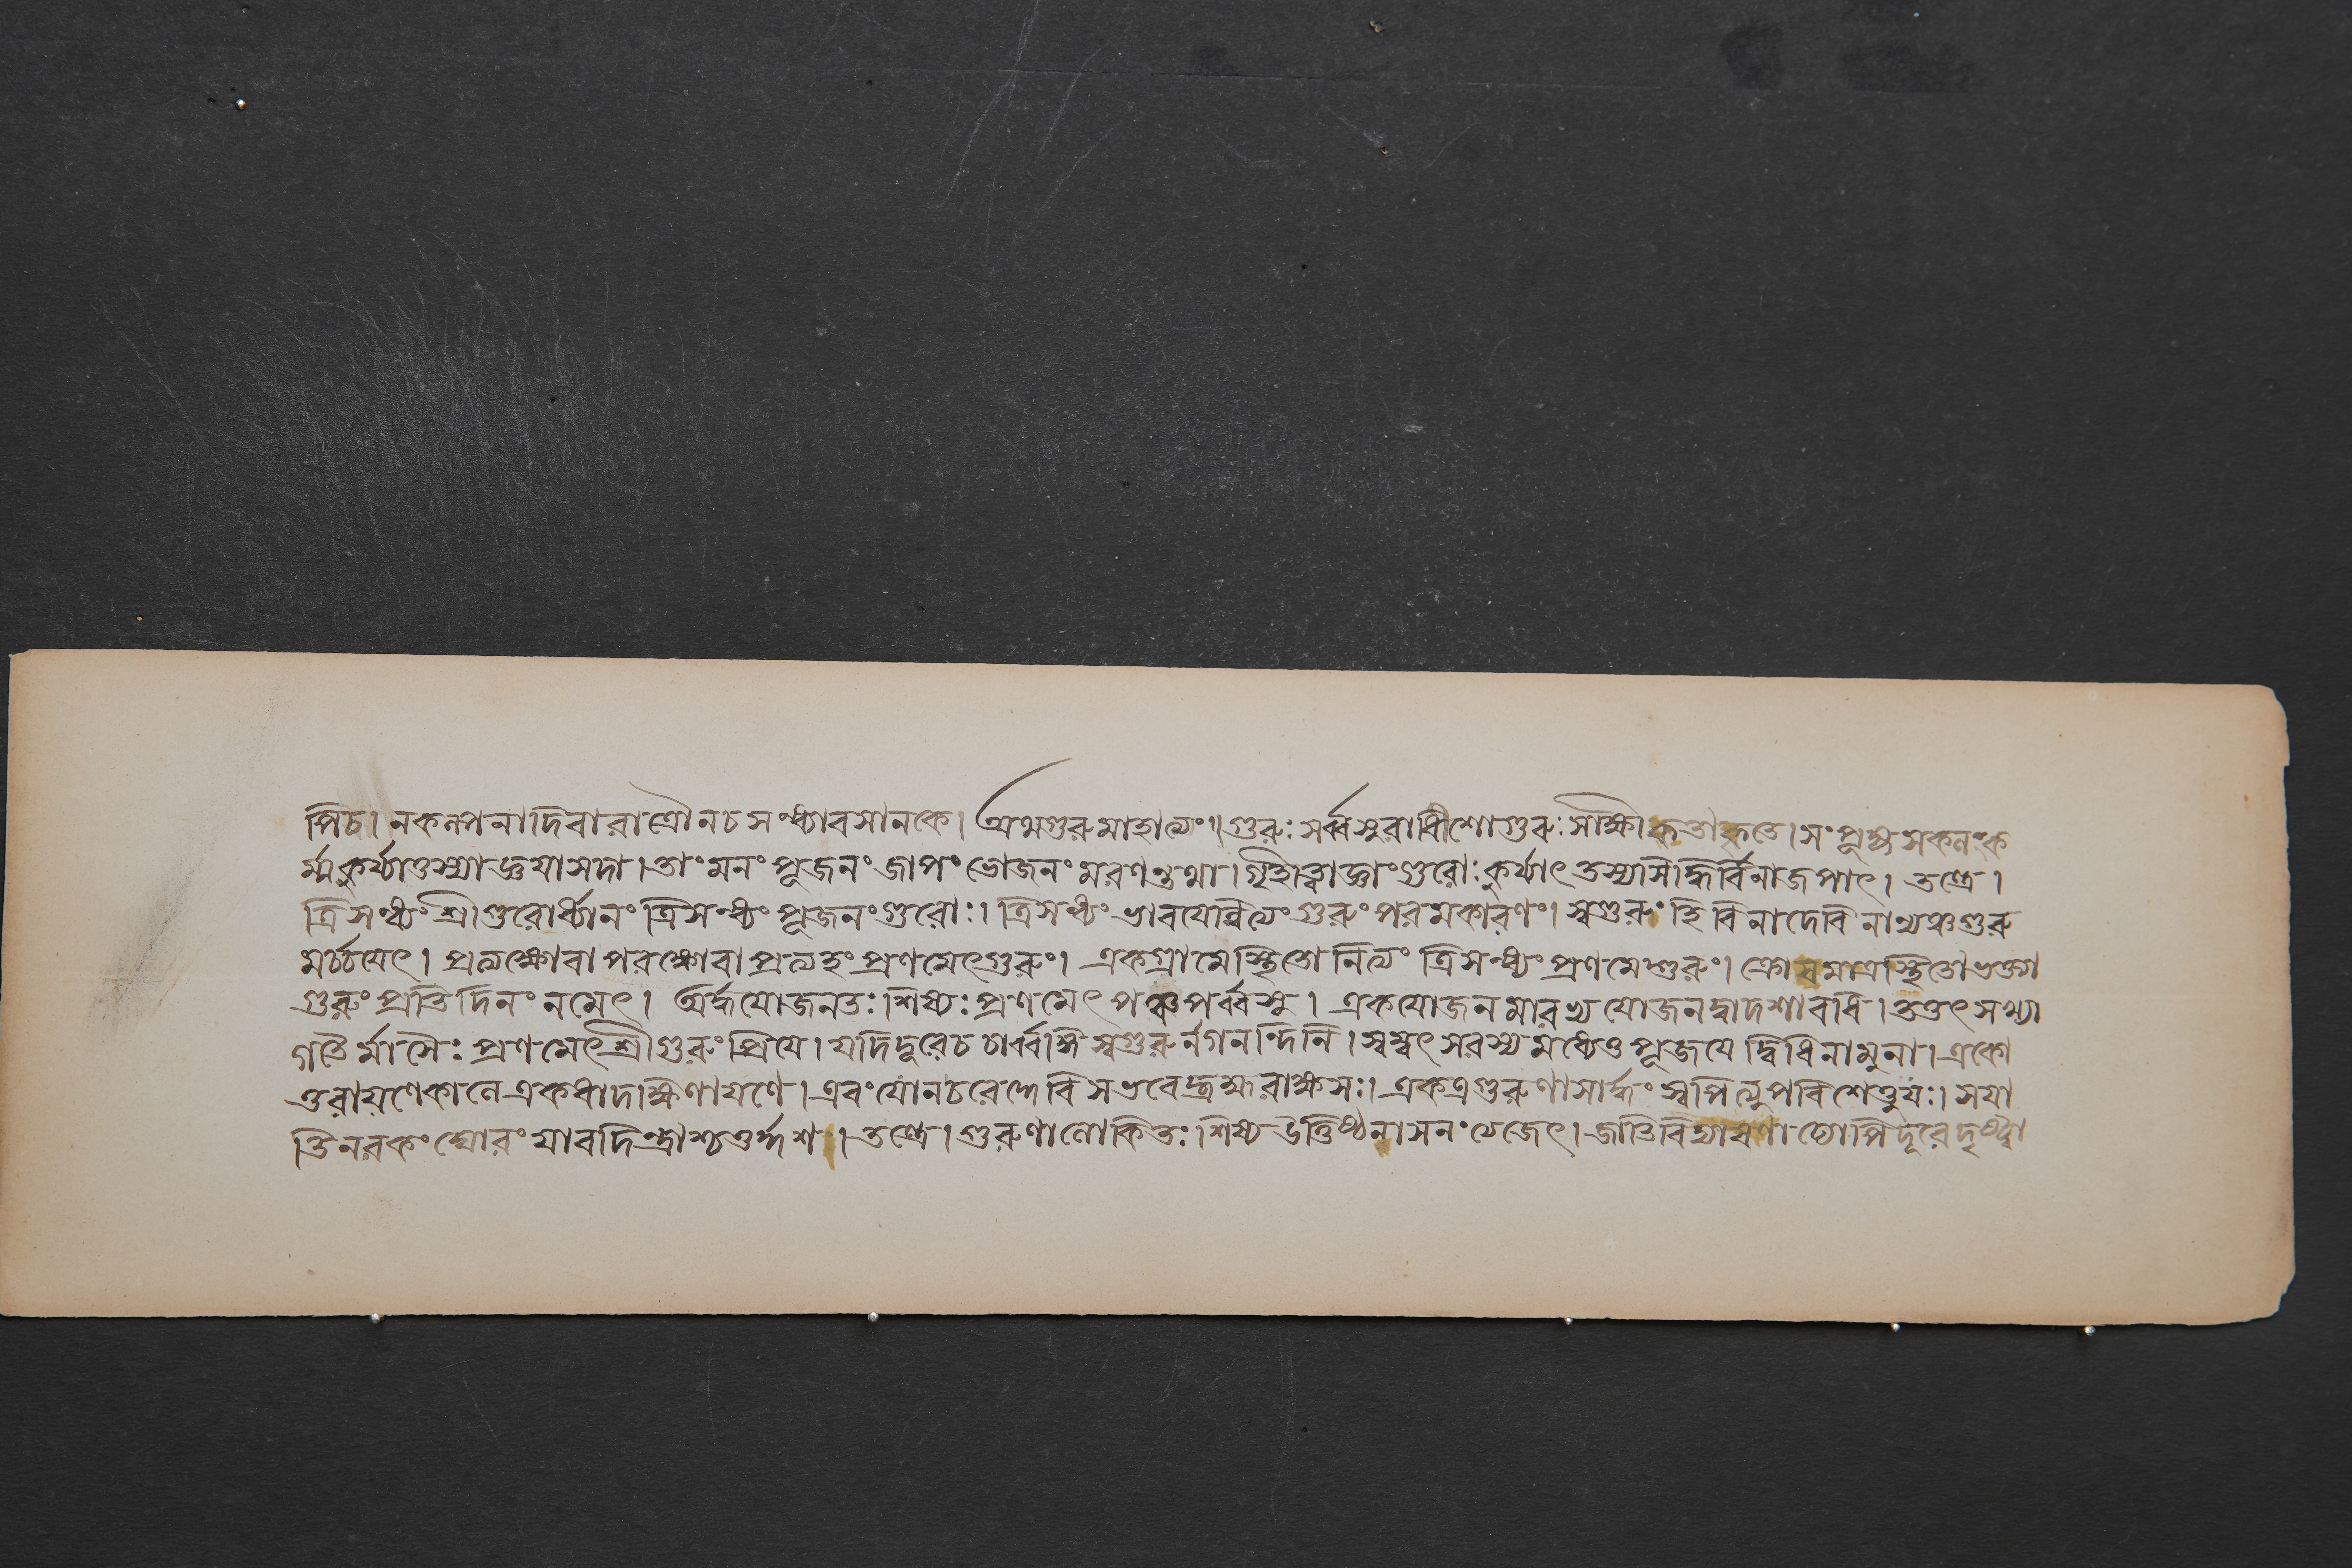 পিচ। নকল্পনাদিবারাত্রৌনচসন্ধ্যাবসানকে। অথগুরুমাহাত্ম্যং।। গুরুঃ সর্ব্বসুরাধীশোগুরুঃ সাক্ষী কৃতাকৃতে। সংপূজ্য সকলং ক
র্ম্ম কুর্য্যাত্তস্যাজ্ঞয়াসদা। তাং মনং পূজনং জাপং ভোজনং মরণন্তথা। গৃহীত্বাজ্ঞাং গুরোঃ কুর্য্যাৎ তস্যাসিদ্ধির্বিনাজপাৎ। তন্ত্রে।
ত্রিসন্ধ্যং শ্রীগুরোর্ধ্যানং ত্রিসন্ধ্যং পূজনং গুরোঃ। ত্রিসন্ধ্যং ভাবয়েন্নিত্যং গুরুং পরমকারণং। স্বগুরুং হি বিনাদেবি নান্যঞ্চগুরু
মর্চ্চয়েৎ। প্রত্যক্ষোবা পরক্ষোবা প্রত্যহং প্রণমেৎগুরুং। একগ্রামেস্থিতো নিত্যং ত্রিসন্ধ্যং প্রণমেদ্গুরুং। ক্রোসমাত্রস্থিতৌভক্ত্যা
গুরুং প্রতিদিনং নমেৎ। অর্দ্ধযোজনতঃ শিষ্যঃ প্রণমেৎ পঞ্চপর্ব্বসু। একযোজনমারভ্য যোজনদ্বাদশাবধি। তত্তৎসংখ্যা
গতৈর্মাসৈঃ প্রণমেৎশ্রীগুরুং প্রিয়ে। যদিদুরেচ চার্ব্বঙ্গি স্বগুরুর্নগনন্দিনি। স্বম্বৎসরস্য মধ্যেতু পূজয়েদ্বিধিনামুনা। একো
ত্তরায়ণেকালে একধাদক্ষিণায়ণে। এবং যোনচরেদ্দেবি সভবেদ্ব্রহ্মরাক্ষসঃ। একত্রগুরুণাসার্দ্ধং স্বপিত্যুপবিশেত্তুযঃ। সযা
তিনরকং ঘোরং যাবদিন্দ্রাশ্চতুর্দ্দশ। তন্ত্রে। গুরুণালোকিতঃ শিষ্য উত্তিষ্ঠন্নাসনং ত্যজেৎ। জাতিবিদ্যা ঢ্যোপি দূরে দৃষ্ট্বা